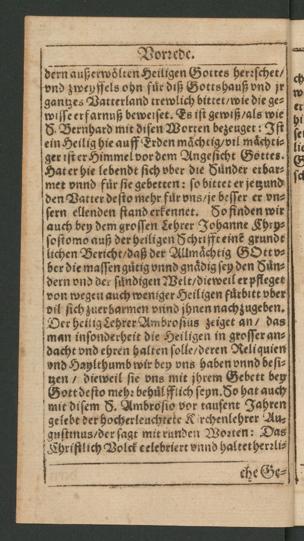 Vorrede.
dern außerwölten Heiligen Gottes herrschet/
vnd zweyffels ohn für diß Gottshauß vnd jr
gantzes Vatterland trewlich bittet/wie die ge-
wisse erfarnuß beweiset. Es ist gewiß/als wie
S. Bernhard mit disen Worten bezeuget: Ist
ein Heilig hie auff Erden mächtig/vil mächti-
ger ist er Himmel vor dem Angesicht Gottes.
Hat er hie lebendt sich vber die Sünder erbar-
met vnnd für sie gebetten: so bittet er jetzund
den Vatter desto mehr für vns/je besser er vn-
sern ellenden stand erkennet. So finden wir
auch bey dem grossen Lehrer Johanne Chry-
sostomo auß der heiligen Schrifft einē grundt
lichen Bericht/daß der Allmächtig GOtt v-
ber die massen gütig vnnd gnädig sey den Sün-
dern vnd der sündigen Welt/dieweil er pfleget
von wegen auch weniger Heiligen fürbitt vber
vil sich zuerbarmen vnnd jhnen nachzugeben.
Der heilig Lehrer Ambrosius zeiget an/ das
man insonderheit die Heiligen in grosser an-
dacht vnd ehren halten solle/deren Reliquien
vnd Haylthumb wir bey vns haben vnnd besi-
tzen/ dieweil sie vns mit jhrem Gebett bey
Gott desto mehr behülfflich seyn. So hat auch
mit disem S. Ambrosio vor tausent Jahren
gelebt der hocherleuchtete Kirchenlehrer Au-
gustinus/der sagt mit runden Worten: Das
Christlich Volck celebriert vnnd haltet herrli-
che Ge-